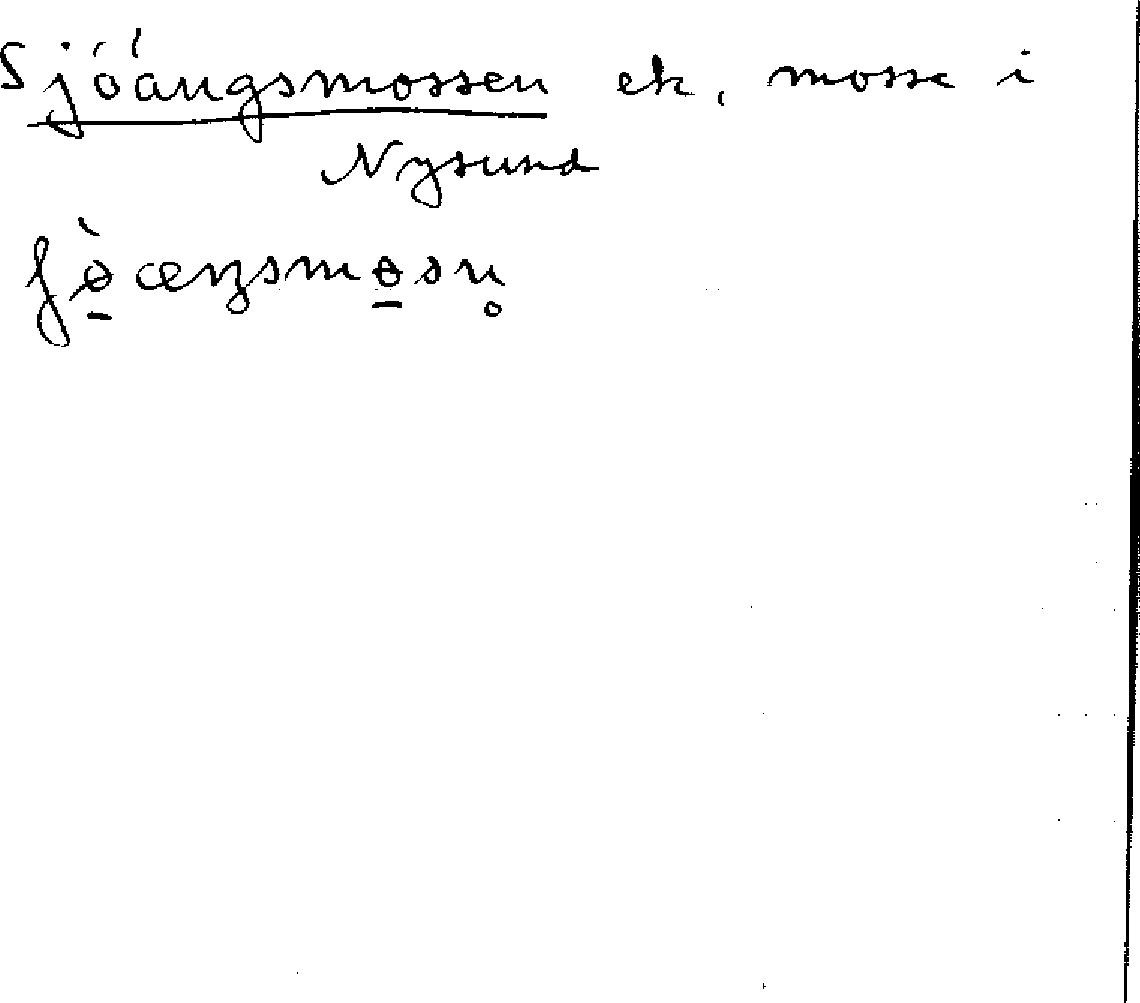 Sjöängsmossen ek, mosse i
Nysund
ʃө̠̀æŋsmө̠sn̥